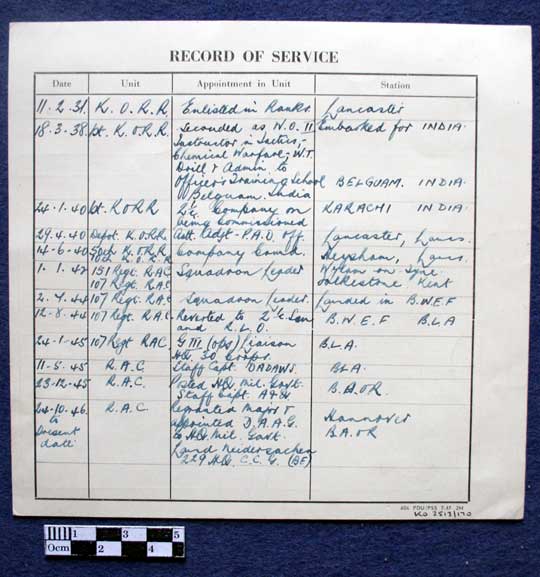 RECORD OF SERVICE
Date Unit Appointment in Unit Station
11. 2. 31. K. O. R. R. Enlisted in Ranks. Lancaster
18. 3. 38. Ist. K. O. R. R. Seconded as W.O. II Embarked for INDIA
Instructor in Tactics,
Chemical Warfare, W.T.
Drill & Admin. to
Officers Training School BELGUAM. INDIA
Belguam. India
24. 1. 40 Ist. K O R R i/c Company on KARACHI INDIA
being Commissioned
29. 4. 40 Depot. K.O.R.R. Asst. Adjt. P.A.D. Off. Lancaster, Lancs.
14. 6. 40 50th K.O.R.R. Company Comd. Heysham, Lancs.
70th K. O. R. R.
1. 1. 42 151 Regt. R.A.C Squadron Leader Wylam on Tyne
107 Regt. R.A.C. Folkestone, Kent
2. 7. 44 107 Regt. R.A.C Squadron Leader. Landed in B.W.E.F
12. 8. 44 107 Regt. R.A.C. Reverted to 2 i/c Sqn B.W.E.F B.L.A
and R. L. O.
24-1-45 107 Regt RAC. G III (ops) Liaison B.L.A.
HQ. 30 Corps.
11-5-45 R.A.C. Staff Capt. DADAWS. BLA.
23-12-45 R.A.C. Posted HQ. Mil. Govt. B.A.O.R.
Staff Capt. A & Q
24-10-46. R.A.C. Promoted Major & Hannover
to appointed D.A.A.G. B.A.O.R
Present to HQ. Mil. Govt.
date Land Neidersachen
229 HQ. C.C.G. (BE)
606 PDU/PSS 7.47 2M
KO 2513/170
0cm 1 2 3 4 5